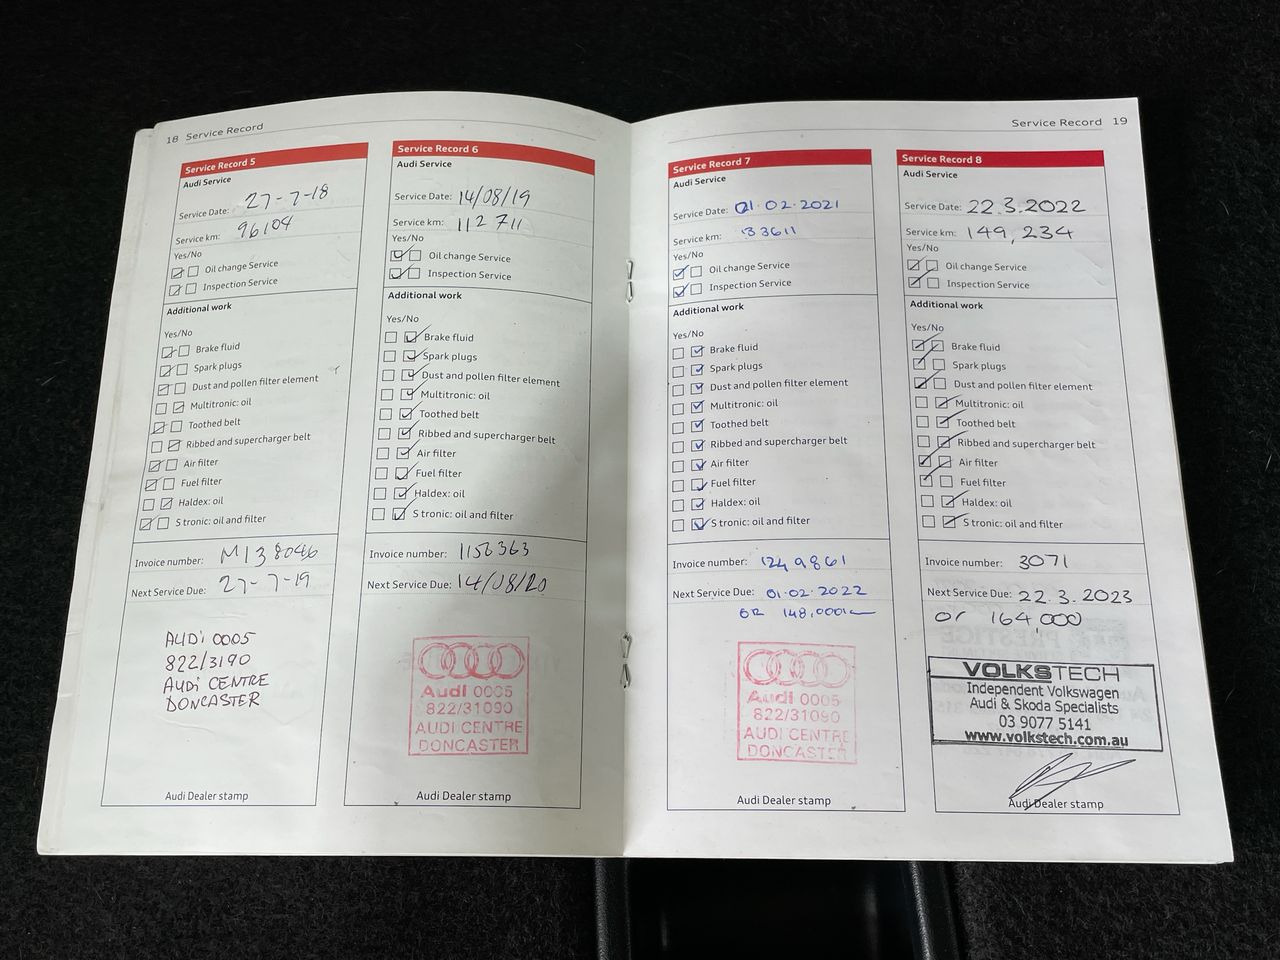 18 Service Record
Service Record 5
Audi Service
Service Date: 27-7-18
Service km: 96104
Yes/No
Oil change Service
Inspection Service
Additional work
Yes/No
Brake fluid
Spark plugs
Dust and pollen filter element
Multitronic: oil
Toothed belt
Ribbed and supercharger belt
Air filter
Fuel filter
Haldex: oil
S tronic: oil and filter
Invoice number: M138046
Next Service Due: 27-7-19
AUDi 0005
822/3190
AUDi CENTRE
DONCASTER
Audi Dealer stamp
Service Record 6
Audi Service
Service Date: 14/08/19
Service km: 112 711
Yes/No
Oil change Service
Inspection Service
Additional work
Yes/No
Brake fluid
Spark plugs
Dust and pollen filter element
Multitronic: oil
Toothed belt
Ribbed and supercharger belt
Air filter
Fuel filter
Haldex: oil
S tronic: oil and filter
Invoice number: 1156363
Next Service Due: 14/08/20
Audi 0005
822/31090
AUDI CENTRE
DONCASTER
Audi Dealer stamp
Service Record 19
Service Record 7
Audi Service
Service Date: 01.02.2021
Service km: 33611
Yes/No
Oil change Service
Inspection Service
Additional work
Yes/No
Brake fluid
Spark plugs
Dust and pollen filter element
Multitronic: oil
Toothed belt
Ribbed and supercharger belt
Air filter
Fuel filter
Haldex: oil
S tronic: oil and filter
Invoice number: 1249861
Next Service Due: 01.02.2022
OR 148,000
Audi 0005
822/31090
AUDI CENTRE
DONCASTER
Audi Dealer stamp
Service Record 8
Audi Service
Service Date: 22.3.2022
Service km: 149,234
Yes/No
Oil change Service
Inspection Service
Additional work
Yes/No
Brake fluid
Spark plugs
Dust and pollen filter element
Multitronic: oil
Toothed belt
Ribbed and supercharger belt
Air filter
Fuel filter
Haldex: oil
S tronic: oil and filter
Invoice number: 3071
Next Service Due: 22.3.2023
or 164,000
VOLKSTECH
Independent Volkswagen
Audi & Skoda Specialists
03 9077 5141
www.volkstech.com.au
Audi Dealer stamp